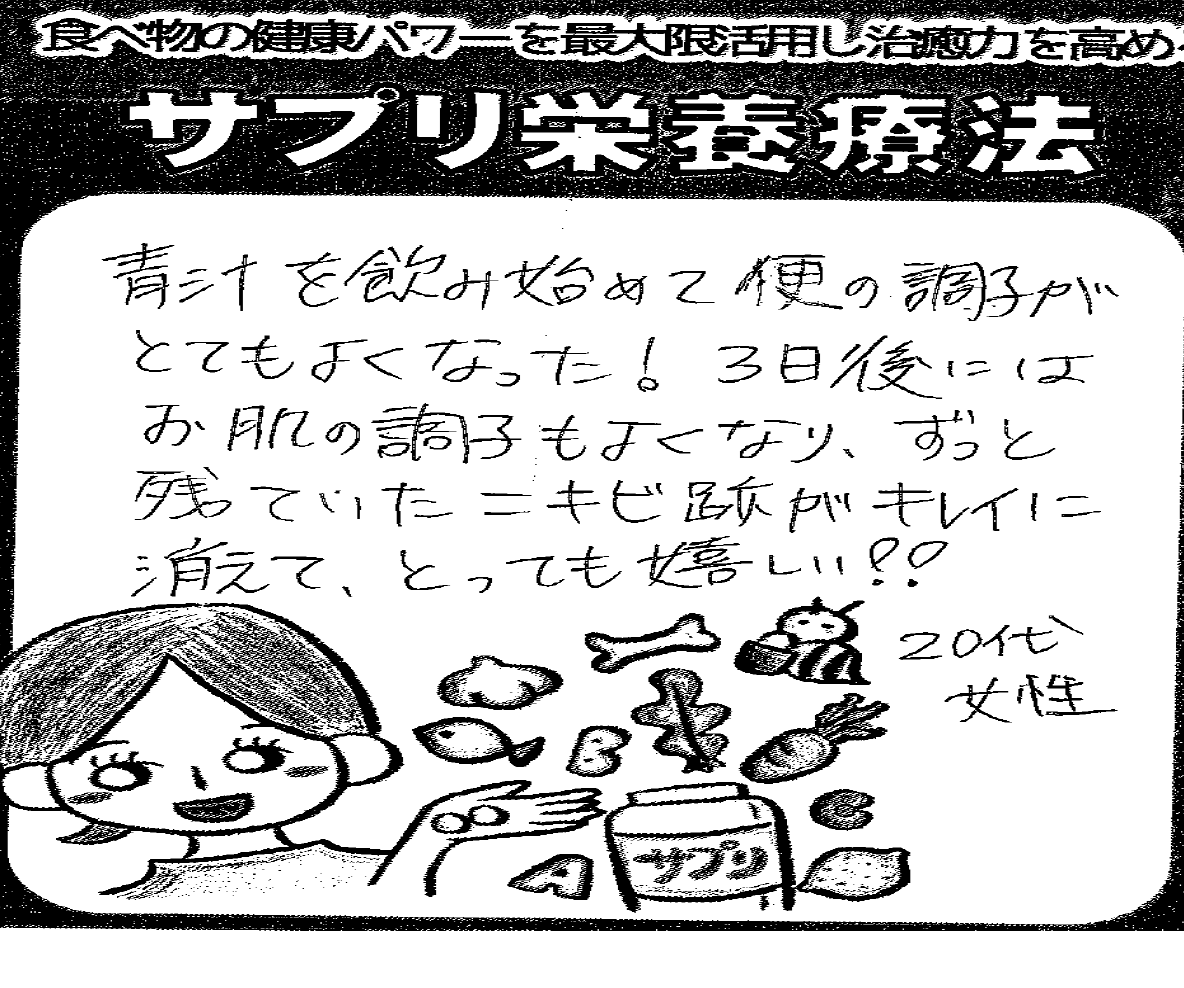 食べ物の健康パワーを最大限活用し治癒力を高める
サプリ栄養療法
青汁を飲み始めて便の調子が
とてもよくなった！3日後には
お肌の調子もよくなり、ずっと
残っていたニキビ跡がキレイに
消えて、とっても嬉しい!?
20代
女性
B
C
A
サプリ